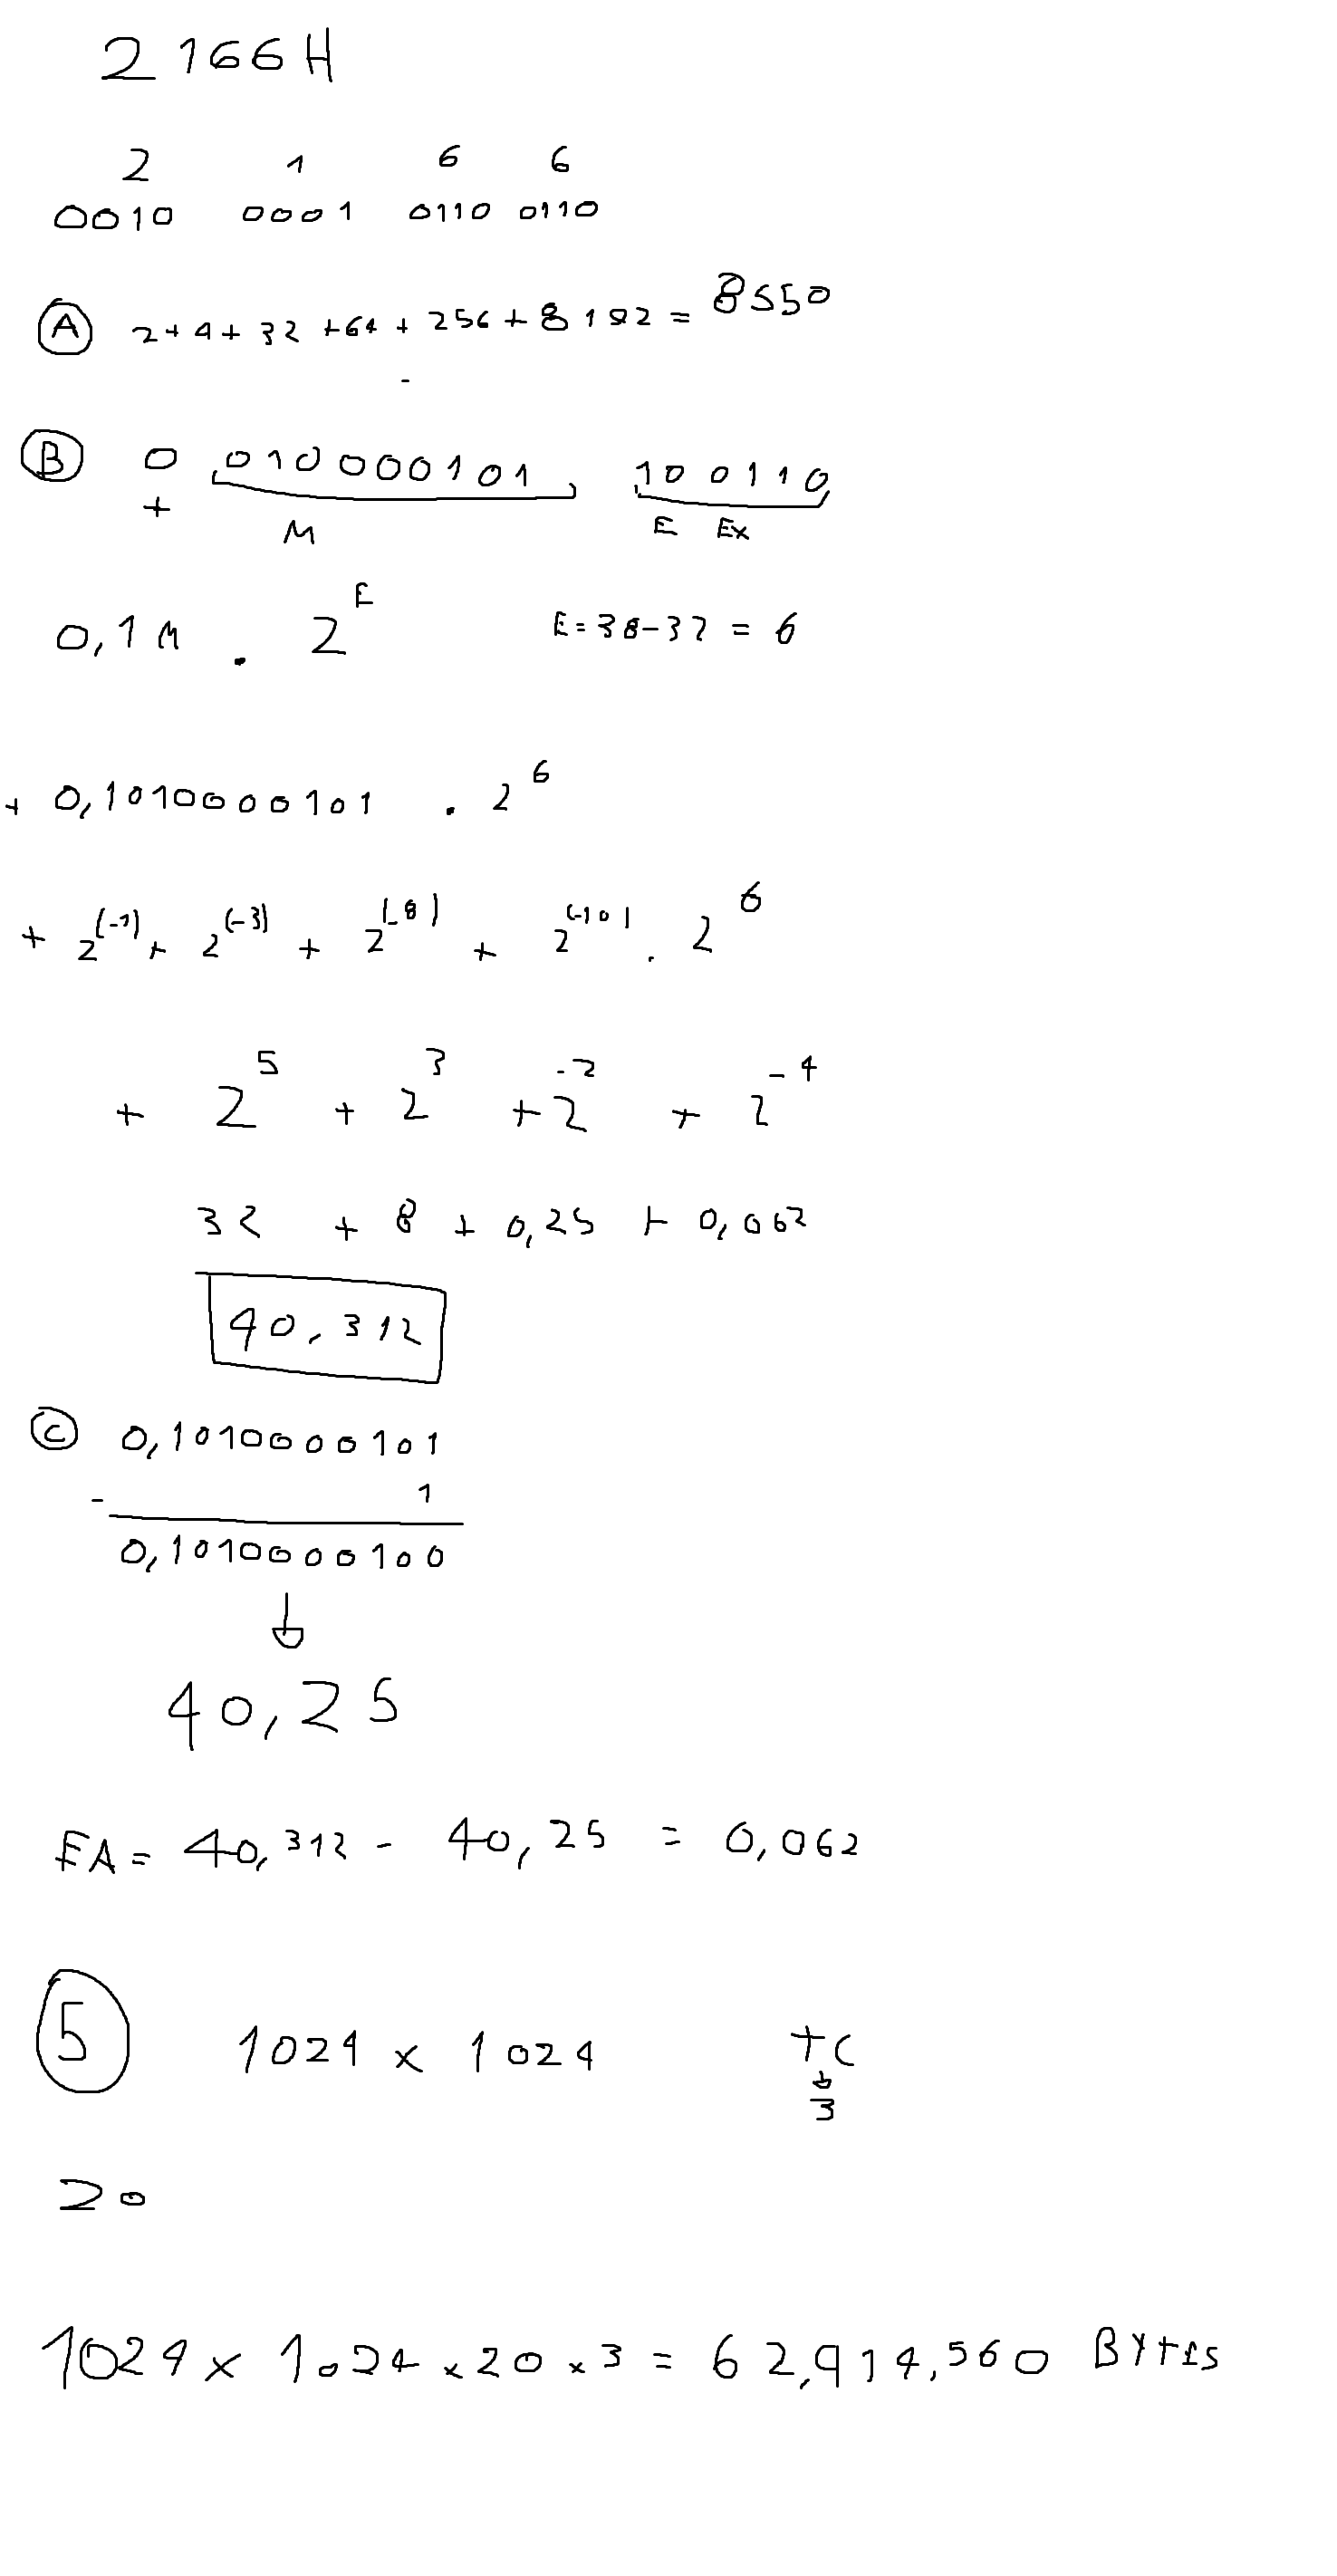 2166H
2 1 6 6
0010 0001 0110 0110
A 2+4+32+64+256+8192=8550
B 0 010000101 100110
+ M E Ex
0,1M . 2^E E=38-32=6
+ 0,1010000101 . 2^6
+ 2^(-1) + 2^(-3) + 2^(-8) + 2^(-10) . 2^6
+ 2^5 + 2^3 + 2^-2 + 2^-4
32 + 8 + 0,25 + 0,062
40,312
C 0,1010000101
- 1
0,1010000100
40,25
EA= 40,312 - 40,25 = 0,062
5 1024 x 1024 TC
3
20
1024 x 1024 x 20 x 3 = 62,914,560 BYTES